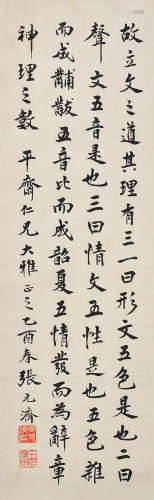 故立文之道其理有三一曰形文五色是也二曰
聲文五音是也三曰情文五性是也五色雜
而成黼黻五音比而成韶夏五情發而為辭章
神理之數 平齋仁兄大雅正之 乙酉春張元濟